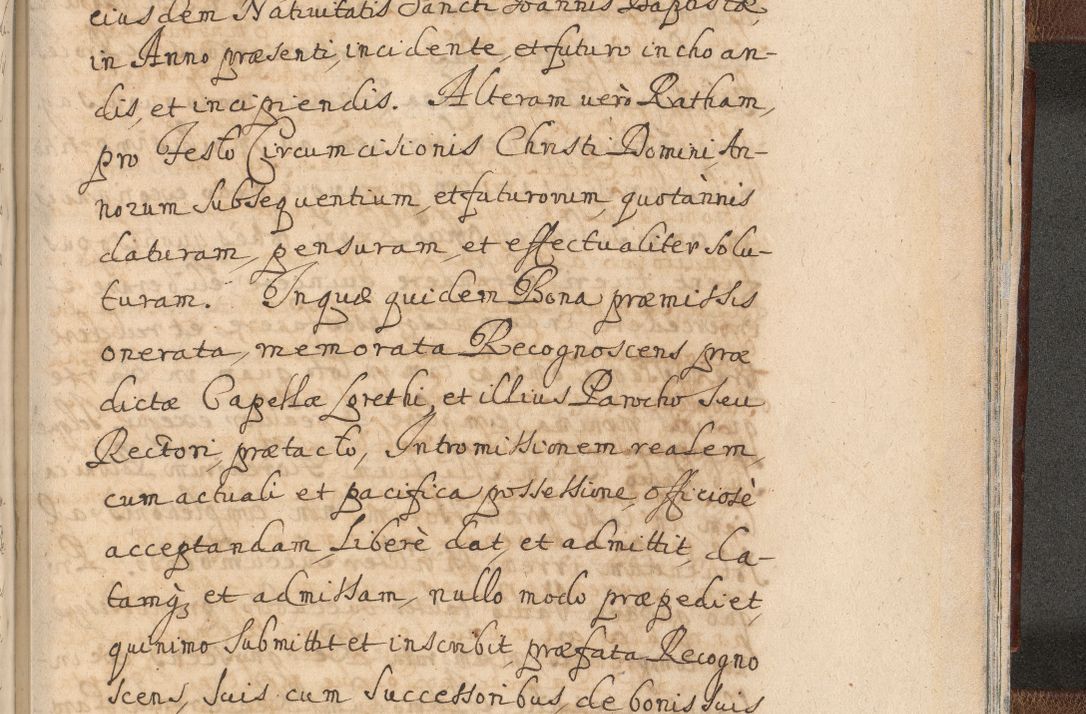 eiusdem Nativitatis Sancti Joannis Baptistæ,
in Anno præsenti, incidente, et futuro inchoan-
dis, et incipiendis. Alteram verò Ratham,
pro Festo Circumcisionis Christi Domini An-
norum subsequentium, et futurorum, quotannis
daturam, pensuram, et effectualiter solu-
turam. In quæ quidem Bona præmissis
onerata, memorata Recognoscens, præ
dictæ Capellæ Lorethi, et illius Parocho seu
Rectori, prætacto, Intromissionem realem,
cum actuali et pacifica possessione, officiosè
acceptandam, Liberè dat, et admittit, da-
tamq, et admissam, nullo modo præpediet,
quinimo submittit et inscribit, præfata Recogno
scens, suis cum successoribus, de bonis suis